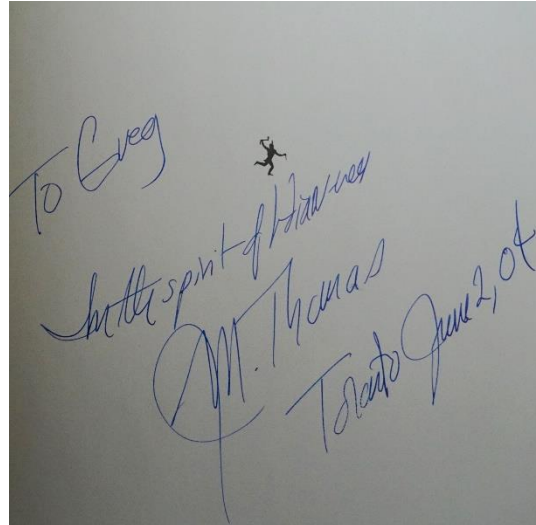 To Greg
In the spirit of
M. Thomas
Toronto June 2, 04